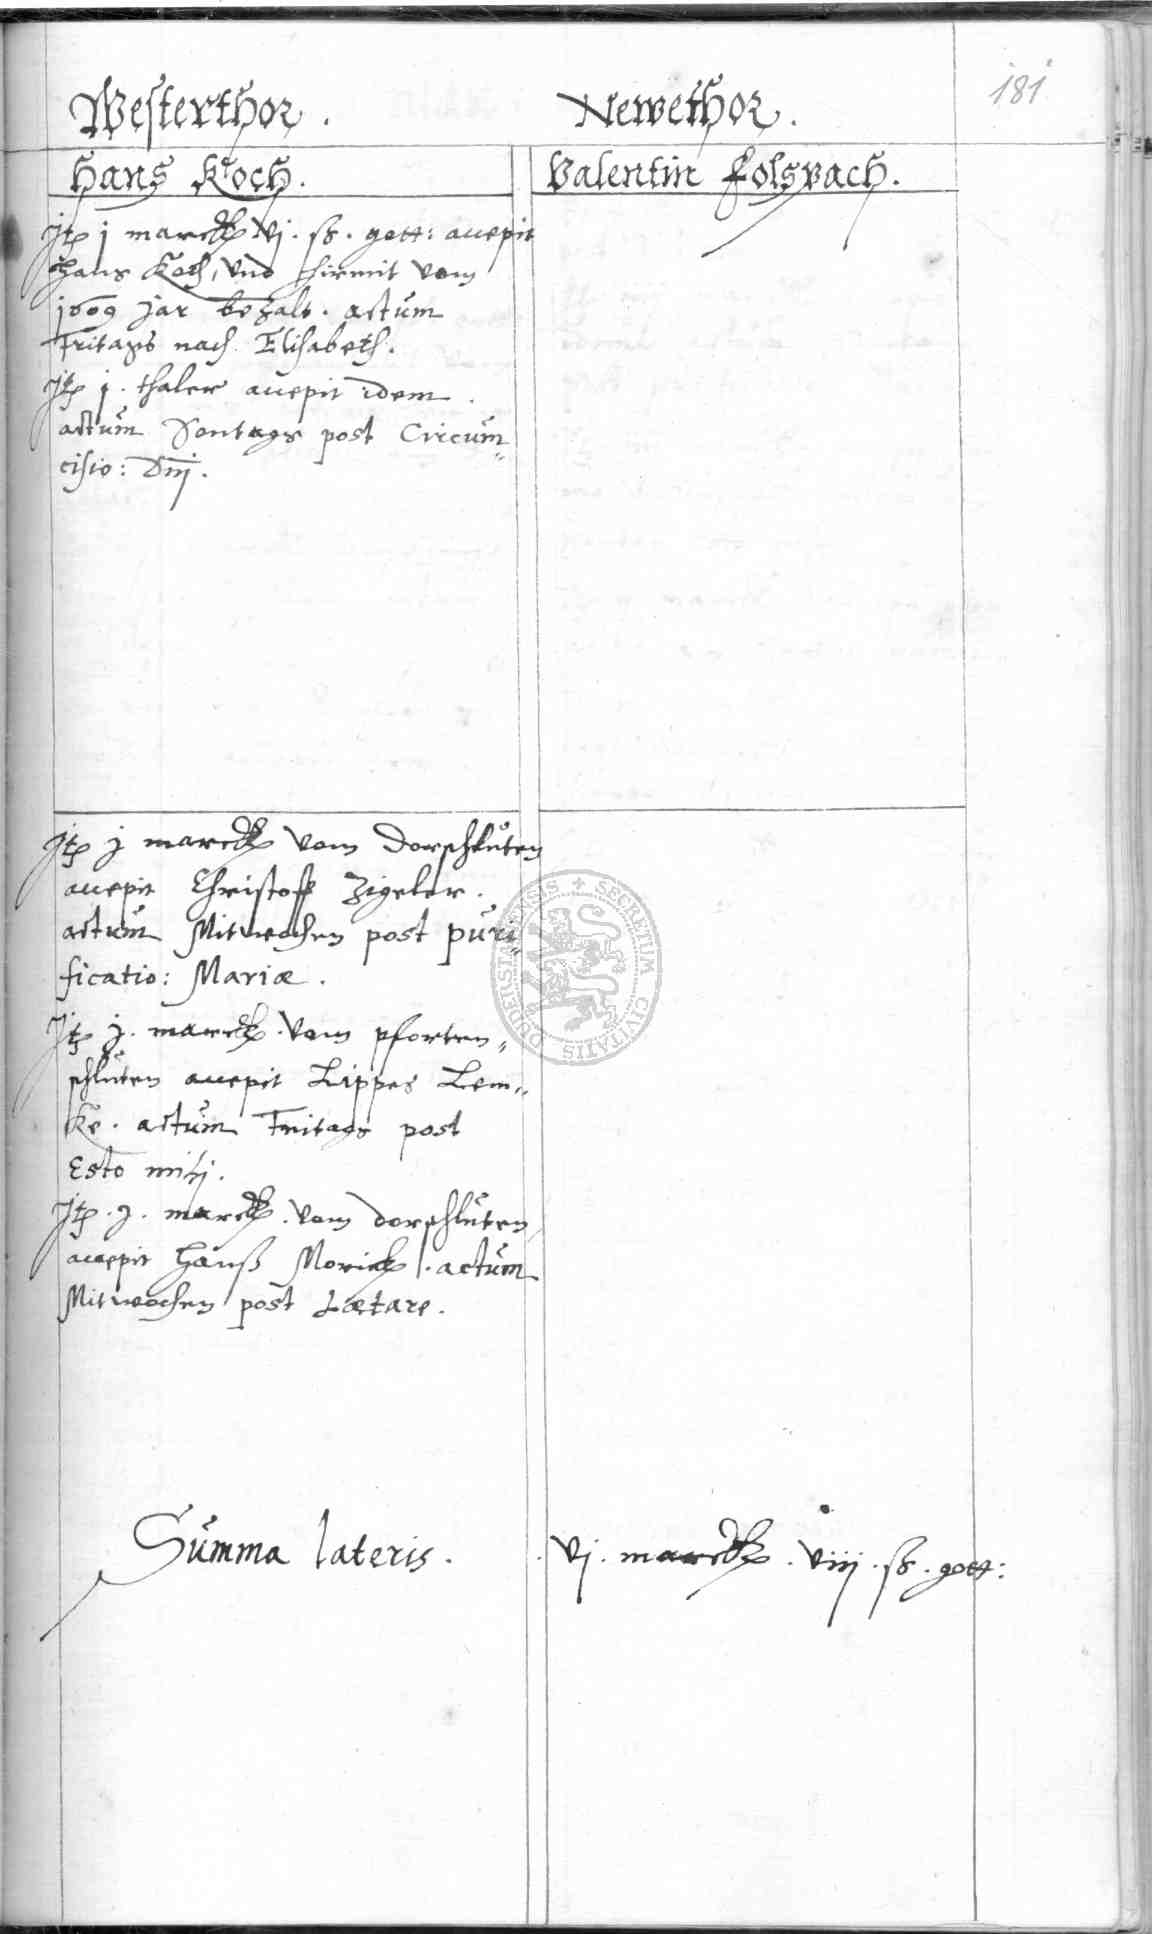 181
Westerthor.
Hans Koch.
Jtp j marck vj. ß. gott: accepit
Hans Koch, vnd hirmit vom
1609 Jar bezalt. actum
Fritags nach Elisabeth.
Jtp j. thaler accepit idem.
actum Sontags post Circum„
cisio: Dnj.
Jtp j marck vom dorschluten
accepit Christoff Zigeler.
actum Mitwochen post puri„
ficatio: Mariæ.
Jtp j. marck. vom pforten„
schluten accepit Lippes Lem„
ke. actum Fritags post
Esto mihj.
Jtp. j. marck. vom dorschluten
accepit Hanß Morick. actum
Mitwochen post Lætare.
Newethor.
Valentin Folspach.
Summa lateris. vj. marck. viij. ß. gott:
SECRETUM CIVITATIS DUDERSTADENSIS